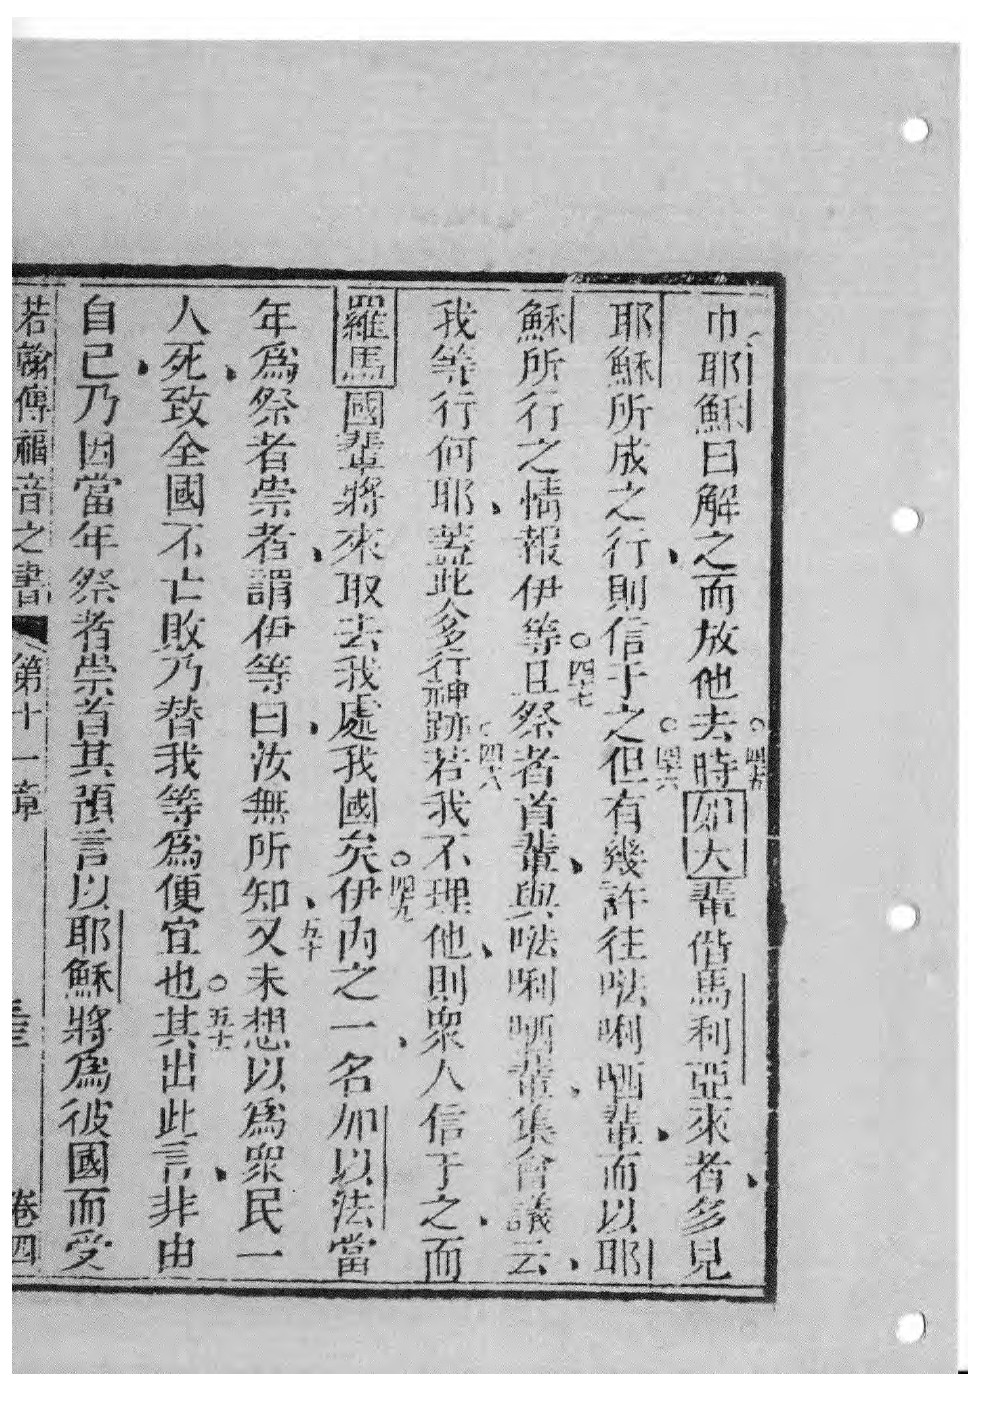 巾耶穌曰解之而放他去時如大輩偕馬利亞來者多見
四五
耶穌所成之行則信于之但有幾許往𠵽唎哂輩而以耶
四六
穌所行之情報伊等且祭者首輩與𠵽唎哂輩集會議云
四七
我等行何耶蓋此人多行神跡若我不理他則眾人信于之而
四八
羅馬國輩將來取去我處我國矣伊內之一名加以法當
四九
年為祭者崇者謂伊等曰汝無所知又未想以為眾民一
五十
人死致全國不亡敗乃替我等為便宜也其出此言非由
五十
自己乃因當年祭者崇首其預言以耶穌將為彼國而受
若翰傳福音之書 第十一章 卷四